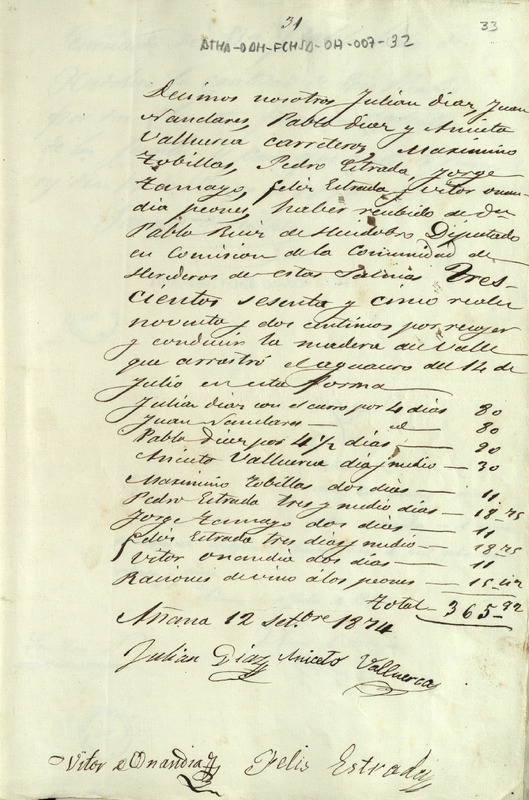 31
33
ATHA-DAH-FCHSA-OH-007-32
Decimos nosotros Julian diaz, Juan
Nanclares, Pablo diaz y Aniceto
Valluerca carreteros, Maximino
Tobillas, Pedro Estrada, Jorge
Tamayo, felis Estrada y Vitor onan
dia peones, haber recibido de Dn
Pablo Ruiz de Huidobro Diputado
en Comision de la Comunidad de
Herederos de estas Salinas Tres-
cientos sesenta y cinco reales
noventa y dos centimos por recoger
y conducir la madera del Valle
que arrastró el aguacero del 14 de
Julio en esta forma
Julian diaz con el carro por 4 dias 80
Juan Nanclares — id — 80
Pablo diaz por 4 1/2 dias — 90
Aniceto Valluerca dia y medio — 30
Maximino Tobillas dos dias — 11
Pedro Estrada tres y medio dias — 18,75
Jorge Tamayo dos dias — 11
felis Estrada tres dias y medio — 18,75
Vitor onandia dos dias — 11
Raciones de vino á los peones — 15,42
total 365-92
Añana 12 Set.bre 1874
Julian Diaz Aniceto Valluerca
Vitor de Onandia Felis Estrada